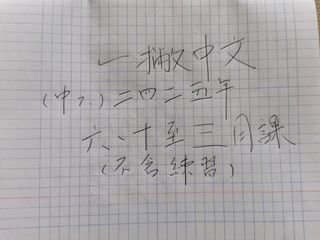 一撇中文
(中 ) 二四二五年
六、十至三月課
(不含練習)